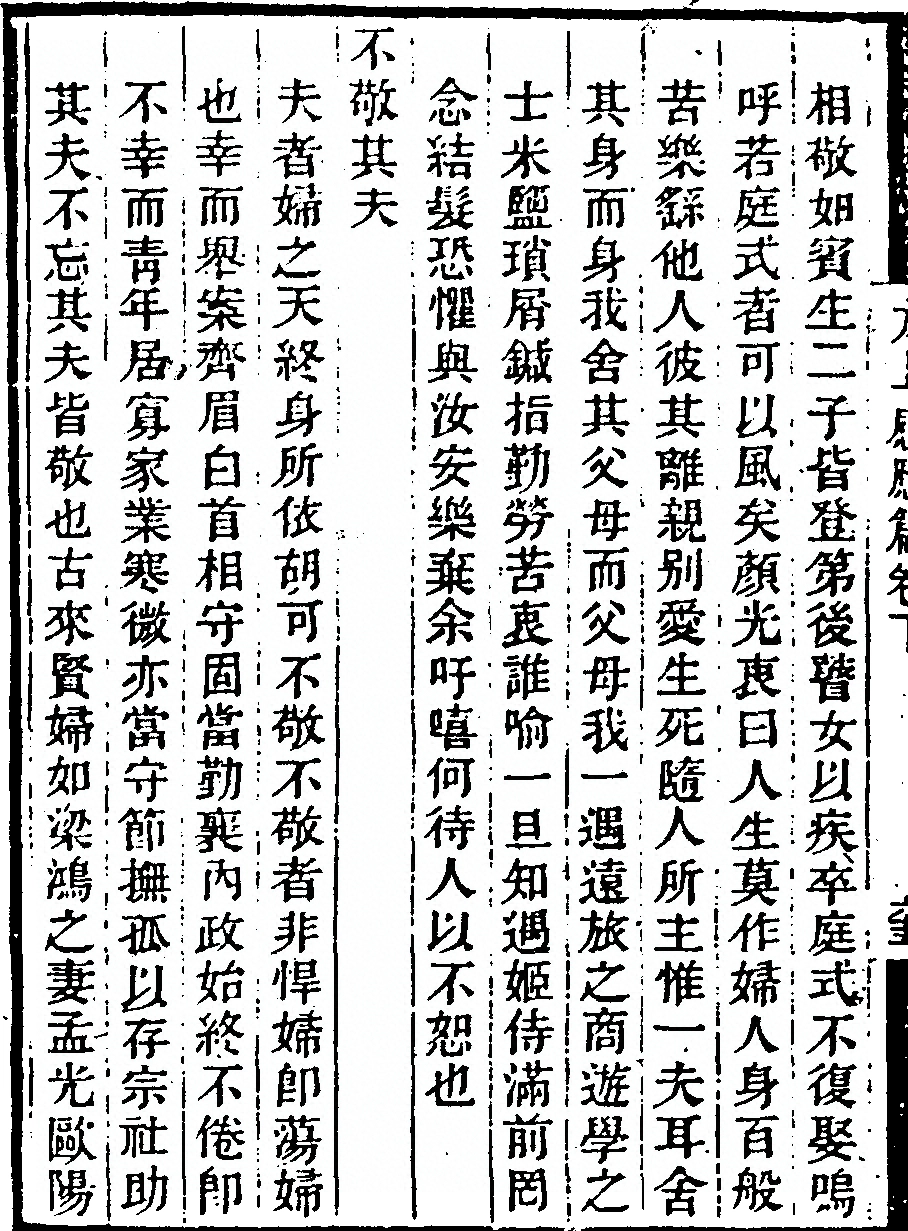 相敬如賓生二子皆登第後瞽女以疾卒庭式不復娶嗚
呼若庭式者可以風矣顏光衷曰人生莫作婦人身百般
苦樂繇他人彼其離親别愛生死隨人所主惟一夫耳舍
其身而身我舍其父母而父母我一遇遠旅之商遊學之
士米鹽瑣屑鍼指勤勞苦衷誰喻一旦知遇姬侍滿前罔
念結髮恐懼與汝安樂棄余吁嘻何待人以不恕也
不敬其夫
夫者婦之天終身所依胡可不敬不敬者非悍婦卽蕩婦
也幸而舉案齊眉白首相守固當勤襄內政始終不倦卽
不幸而靑年居寡家業寒微亦當守節撫孤以存宗社助
其夫不忘其夫皆敬也古來賢婦如梁鴻之妻孟光歐陽